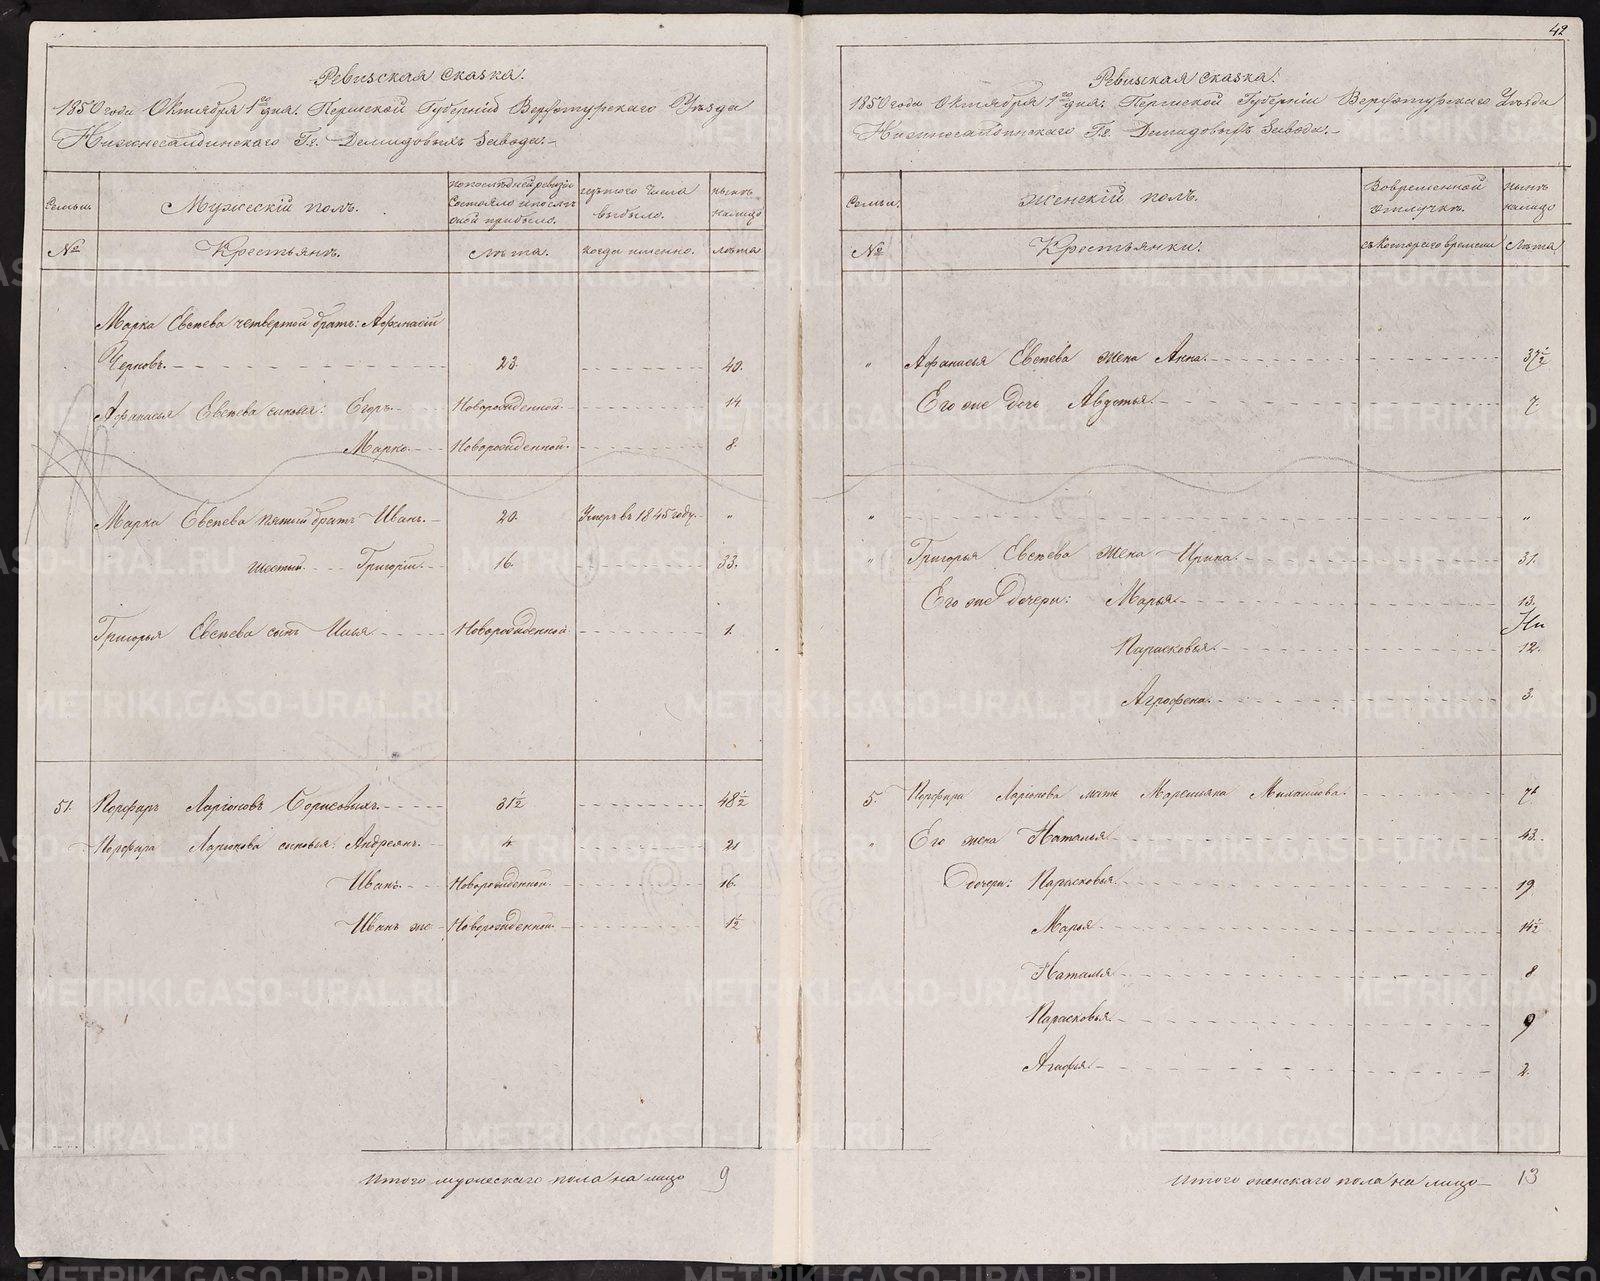 Ревизская сказка.
1850 года Октября 1го дня. Пермской Губернiи Верхотурскаго Уѣзда
Нижнесалдинскаго Гг. Демидовыхъ Завода.
Семьи. Мужескiй полъ. по последней ревизiи состояло и после оной прибыло. изъ того числа выбыло. нынѣ налицо
№ Крестьянъ. Лѣта. когда именно. лѣта
Марка Евсѣева четвертой братъ: Афанасiй
Черновъ. 23. 40.
Афанасья Евсѣева сыновья: Егоръ Новорожденной. 14
Марко Новорожденной. 8.
Марка Евсѣева пятый братъ Иванъ. 20. Умеръ въ 1845 году. "
шестый Григорiй. 16. 33.
Григорья Евсѣева сынъ Илья Новорожденной 1.
51. Порфиръ Ларiоновъ Борисовыхъ. 31½ 48½
Порфира Ларiонова сыновья: Андреянъ. 4. 21
Иванъ Новорожденной. 16.
Иванъ же Новорожденной. 1½
Итого мужескаго пола на лицо 9
42
Ревизская сказка.
1850 года Октября 1го дня. Пермской Губернiи Верхотурскаго Уѣзда
Нижнесалдинскаго Гг. Демидовыхъ Завода.
Семьи. Женскiй полъ. Во временной отлучкѣ. нынѣ налицо
№ Крестьянки. съ котораго времени Лѣта
" Афанасья Евсѣева жена Анна. 37½
Его же дочь Авдотья. 7.
" "
" Григорья Евсѣева жена Ирина. 31.
Его же дочери: Марья 13.
Парасковья. 12.
Агрофена. 3.
5. Порфира Ларiонова мать Маремьяна Михайлова. 71
" Его жена Наталья 43.
дочери: Парасковья 19
Марья 14½
Наталья 8
Парасковья. 9
Агафья 2.
Итого женскаго пола на лицо 13
METRIKI.GASO-URAL.RU